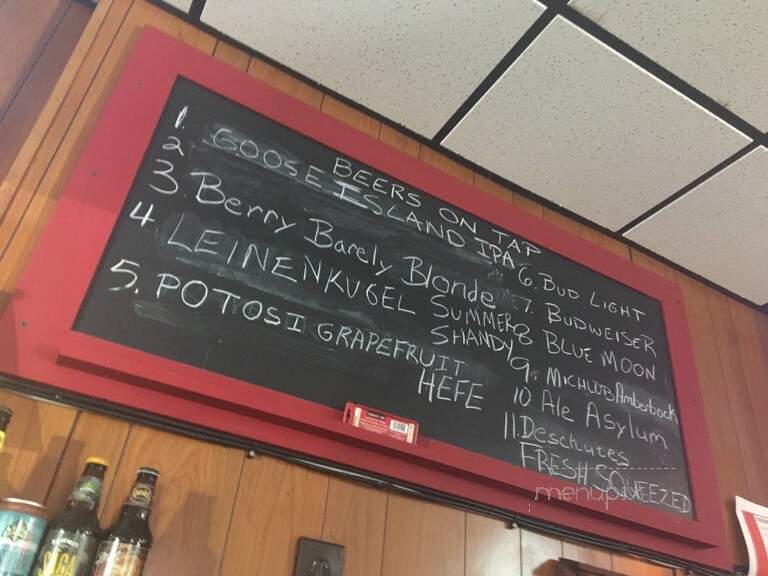 BEERS ON TAP
1.
2 GOOSE ISLAND IPA
3 Berry Barely Blonde
4 LEINENKUGEL SUMMER
SHANDY
5. POTOSI GRAPEFRUIT
HEFE
6. BUD LIGHT
7. BUDWEISER
8 BLUE MOON
9. MICHLUB Amberbock
10 Ale Asylum
11. Deschutes
FRESH SQUEEZED
menupix
SAGA